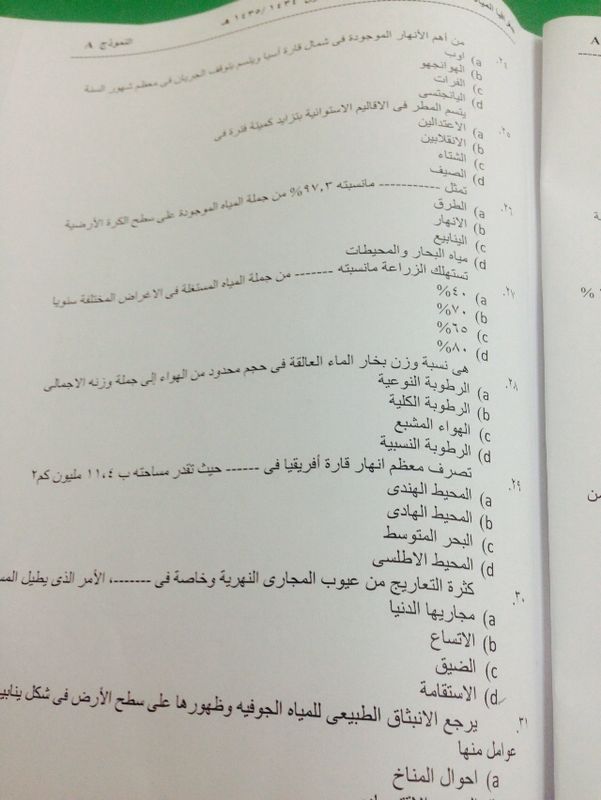 جغرافيا المياه ١٤٣٥/١٤٣٤ هـ
النموذج A
٢٤. من أهم الأنهار الموجودة فى شمال قارة أسيا ويتسم بتوقف الجريان فى معظم شهور السنة
a) أوب
b) الهوانجهو
c) الفرات
d) اليانجتسى
٢٥. يتسم المطر فى الاقاليم الاستوائية بتزايد كميته فترة فى
a) الاعتدالين
b) الانقلابين
c) الشتاء
d) الصيف
٢٦. تمثل ----------- مانسبته ٩٧,٣% من جملة المياه الموجودة على سطح الكرة الأرضية
a) الطرق
b) الانهار
c) الينابيع
d) مياه البحار والمحيطات
٢٧. تستهلك الزراعة مانسبته ------- من جملة المياه المستغلة فى الاغراض المختلفة سنويا
a) ٤٠%
b) ٧٠%
c) ٦٥%
d) ٨٠%
٢٨. هى نسبة وزن بخار الماء العالقة فى حجم محدود من الهواء إلى جملة وزنه الاجمالى
a) الرطوبة النوعية
b) الرطوبة الكلية
c) الهواء المشبع
d) الرطوبة النسبية
٢٩. تصرف معظم انهار قارة أفريقيا فى ------ حيث تقدر مساحته ب ١١,٤ مليون كم٢
a) المحيط الهندى
b) المحيط الهادى
c) البحر المتوسط
d) المحيط الاطلسى
٣٠. كثرة التعاريج من عيوب المجارى النهرية وخاصة فى -------، الأمر الذى يطيل
a) مجاريها الدنيا
b) الاتساع
c) الضيق
d) الاستقامة
٣١. يرجع الانبثاق الطبيعى للمياه الجوفيه وظهورها على سطح الأرض فى شكل
عوامل منها
a) احوال المناخ
A
%
من